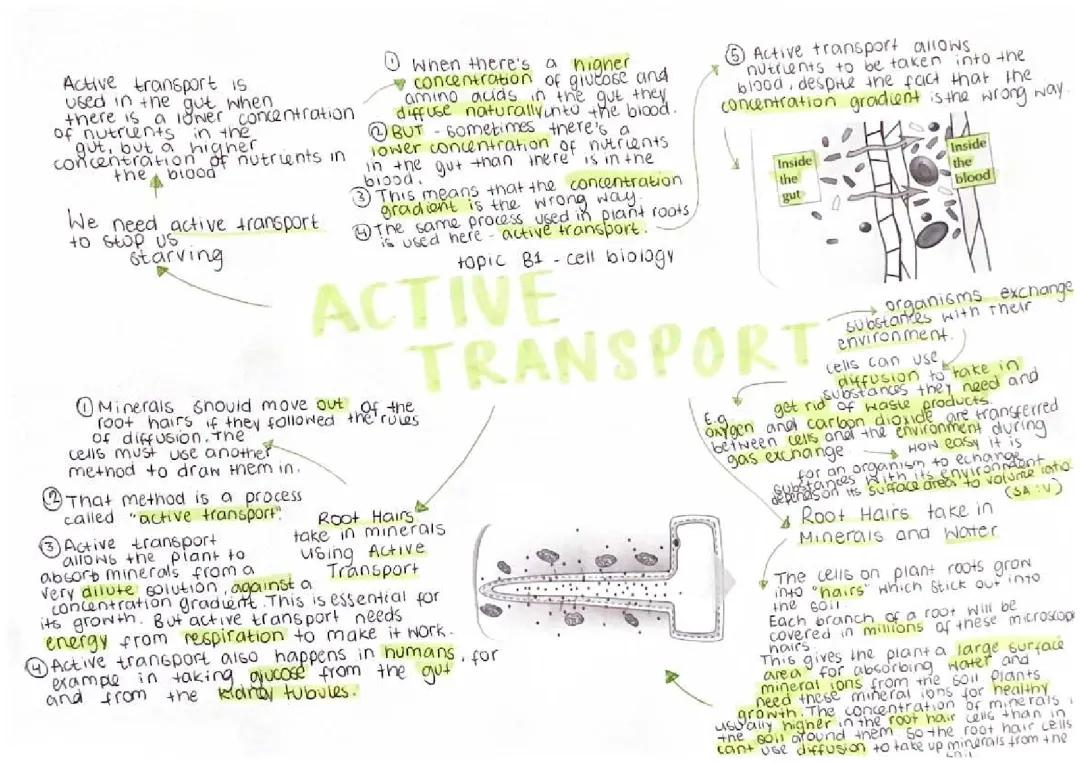 Active transport is
used in the gut when
there is a lower concentration
of nutrients in the
gut, but a higher
concentration of nutrients in
the blood
We need active transport
to stop us
starving
① When there's a higher
concentration of glucose and
amino acids in the gut they
diffuse naturally into the blood.
② BUT - sometimes there's a
lower concentration of nutrients
in the gut than there is in the
blood.
③ This means that the concentration
gradient is the wrong way.
④ The same process used in plant roots
is used here - active transport.
topic B1 - cell biology
⑤ Active transport allows
nutrients to be taken into the
blood, despite the fact that the
concentration gradient is the wrong way.
Inside
the
gut
Inside
the
blood
ACTIVE
TRANSPORT
organisms exchange
substances with their
environment.
cells can use
diffusion to take in
substances they need and
get rid of waste products.
E.g. oxygen and carbon dioxide are transferred
between cells and the environment during
gas exchange
How easy it is
for an organism to echange
substances with its environment
depends on its surface area to volume ratio.
(SA:V)
① Minerals should move out of the
root hairs if they followed the rules
of diffusion. The
cells must use another
method to draw them in.
② That method is a process
called "active transport".
③ Active transport
allows the plant to
absorb minerals from a
very dilute solution, against a
concentration gradient. This is essential for
its growth. But active transport needs
energy from respiration to make it work.
④ Active transport also happens in humans, for
example in taking glucose from the gut
and from the kidney tubules.
Root Hairs
take in minerals
using Active
Transport
Root Hairs take in
Minerals and Water
The cells on plant roots grow
into "hairs" which stick out into
the soil.
Each branch of a root will be
covered in millions of these microscopi
hairs.
This gives the plant a large surface
area for absorbing water and
mineral ions from the soil Plants
need these mineral ions for healthy
growth. The concentration of minerals i
usually higher in the root hair cells than in
the soil around them so the root hair cells
cant use diffusion to take up minerals from the